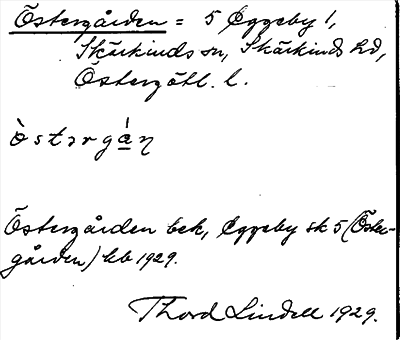 Östergården = 5 Eggeby 1,
Skärkinds sn, Skärkinds hd,
Östergötl. l.
östərgán
Östergården bek, Eggeby sk 5 (Öster-
gården) kb 1929.
Thord Lindell 1929.